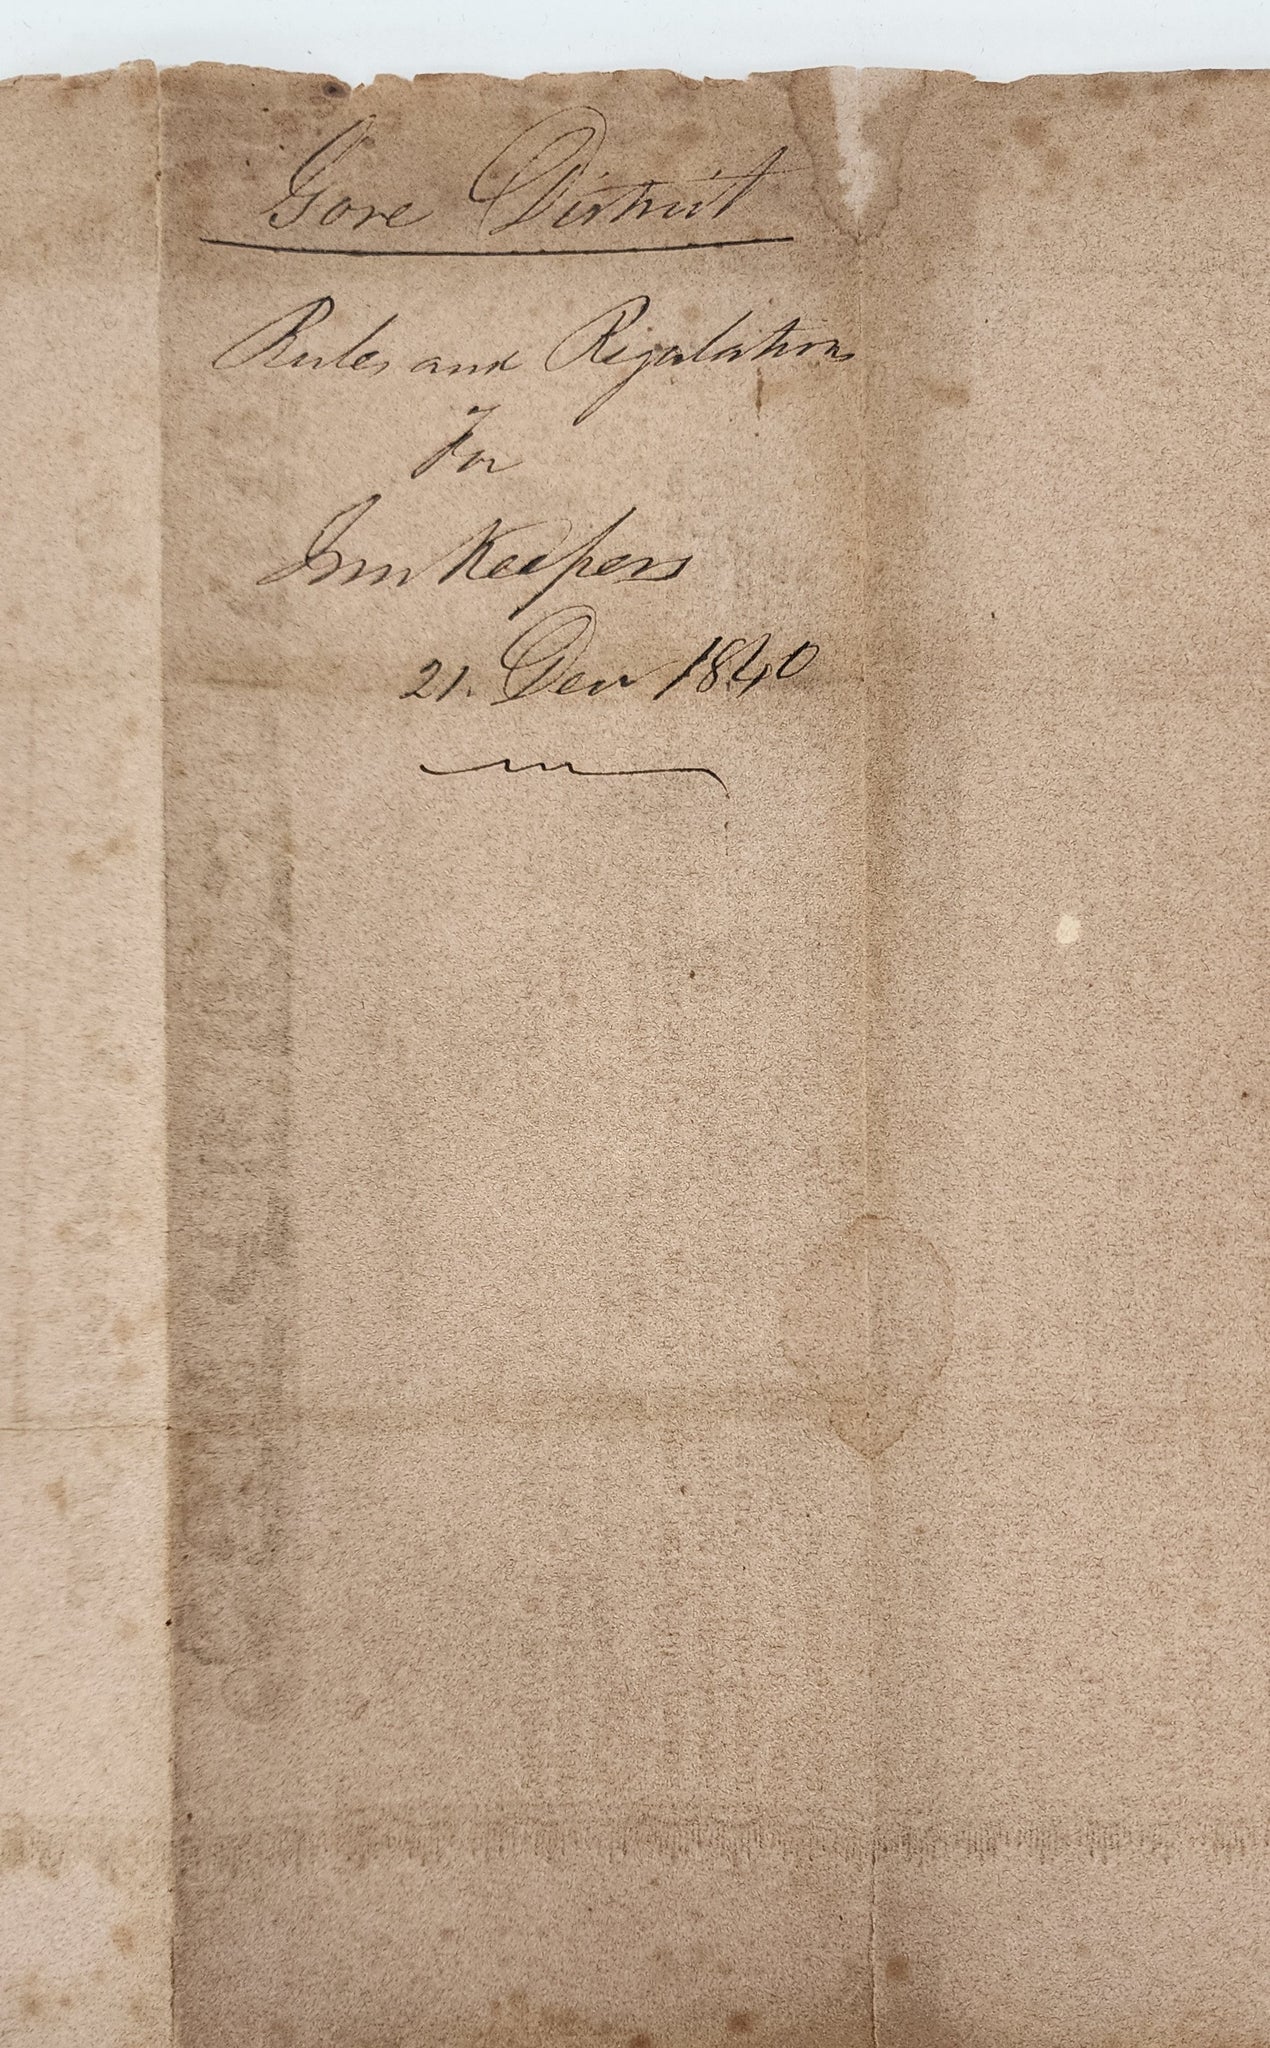 Gore District
Rules and Regulations
For
Inn Keepers
21. Decr 1840